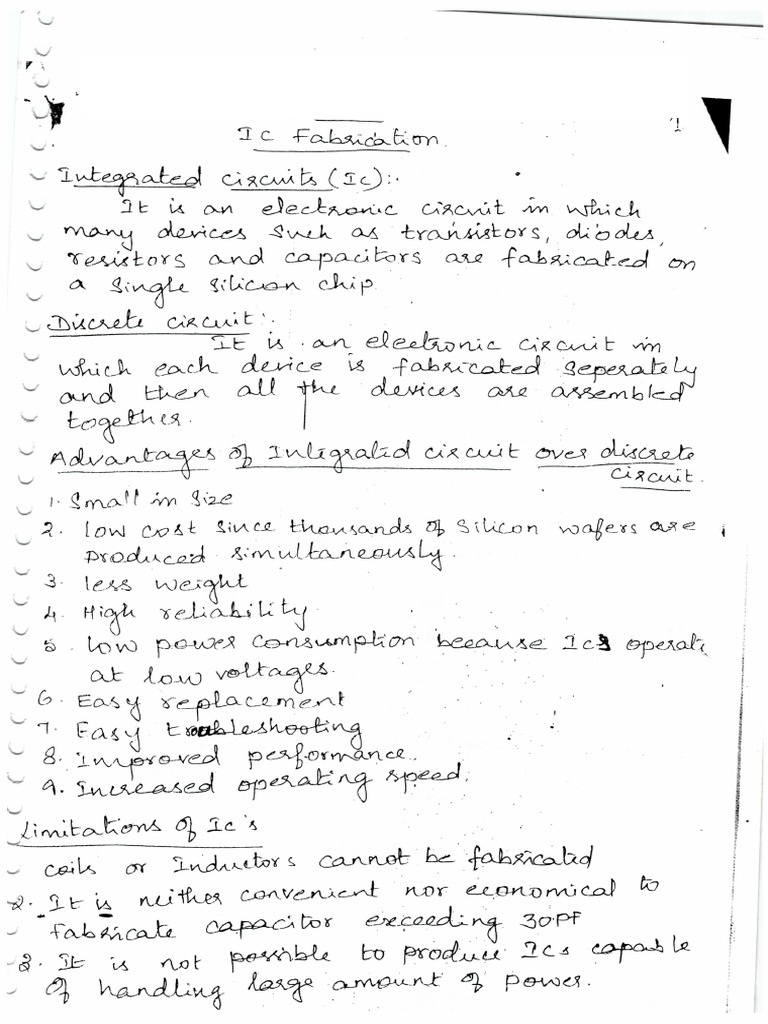 1
IC Fabrication.
Integrated circuits (IC):-
It is an electronic circuit in which
many devices such as transistors, diodes,
resistors and capacitors are fabricated on
a single silicon chip
Discrete circuit:-
It is an electronic circuit in
which each device is fabricated seperately
and then all the devices are assembled
together.
Advantages of Integrated circuit over discrete
circuit.
1. Small in size
2. low cost since thousands of silicon wafers are
produced simultaneously.
3. less weight
4. High reliability
5. low power consumption because ICs operate
at low voltages.
6. Easy replacement
7. Easy troubleshooting
8. Improved performance.
9. Increased operating speed.
Limitations of Ic's
coils or Inductors cannot be fabricated
2. It is neither convenient nor economical to
fabricate capacitor exceeding 30PF
3. It is not possible to produce ICs capable
of handling large amount of power.